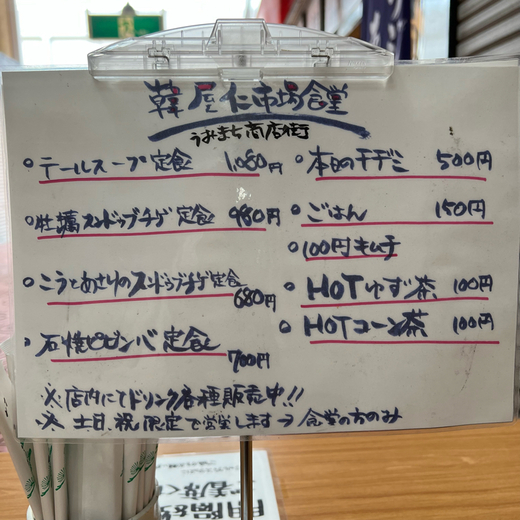 韓屋仁市場食堂
うみまち商店街
○テールスープ定食 1,080円
○牡蠣スンドゥブチゲ定食 980円
○こうとあさりのスンドゥブチゲ定食 680円
石焼ビビンバ定食 700円
○本日のチヂミ 500円
○ごはん 150円
○100円キムチ
○HOTゆず茶 100円
○HOTコーン茶 100円
※店内にてドリンク各種販売中!!
※土日、祝限定で営業します→食堂の方のみ